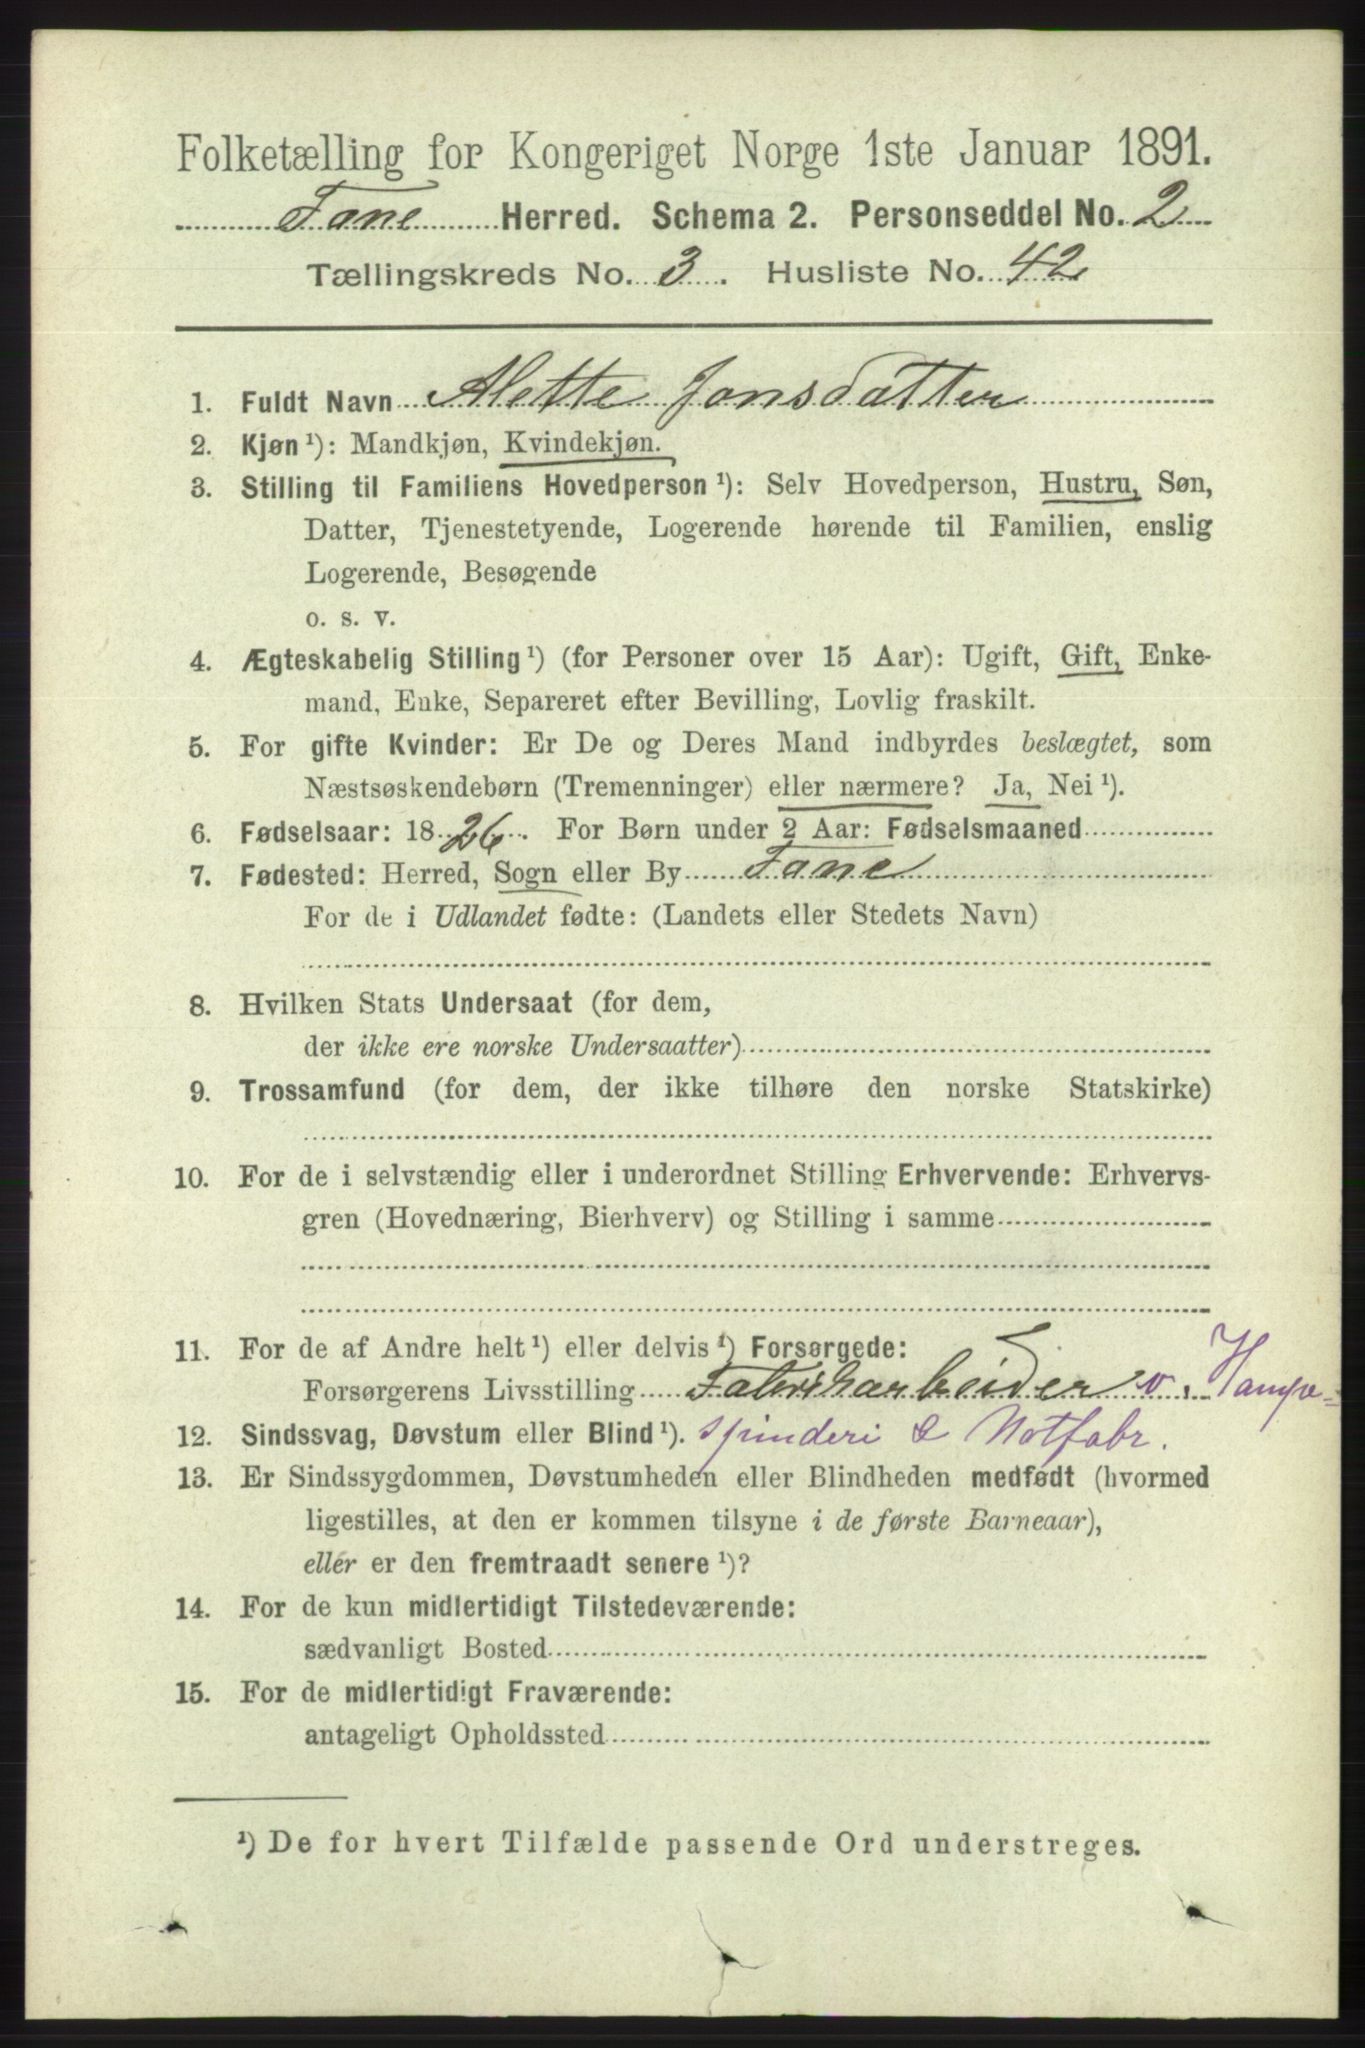 Folketælling for Kongeriget Norge 1ste Januar 1891.
Fane Herred. Schema 2. Personseddel No. 2
Tællingskreds No. 3. Husliste No. 42
1. Fuldt Navn Alette Jonsdatter
2. Kjøn ¹): Mandkjøn, Kvindekjøn.
3. Stilling til Familiens Hovedperson ¹): Selv Hovedperson, Hustru, Søn,
Datter, Tjenestetyende, Logerende hørende til Familien, enslig
Logerende, Besøgende
o. s. v.
4. Ægteskabelig Stilling ¹) (for Personer over 15 Aar): Ugift, Gift, Enke-
mand, Enke, Separeret efter Bevilling, Lovlig fraskilt.
5. For gifte Kvinder: Er De og Deres Mand indbyrdes beslægtet, som
Næstsøskendebørn (Tremenninger) eller nærmere? Ja, Nei ¹).
6. Fødselsaar: 1826. For Børn under 2 Aar: Fødselsmaaned
7. Fødested: Herred, Sogn eller By Fane
For de i Udlandet fødte: (Landets eller Stedets Navn)
8. Hvilken Stats Undersaat (for dem,
der ikke ere norske Undersaatter)
9. Trossamfund (for dem, der ikke tilhøre den norske Statskirke)
10. For de i selvstændig eller i underordnet Stilling Erhvervende: Erhvervs-
gren (Hovednæring, Bierhverv) og Stilling i samme
11. For de af Andre helt ¹) eller delvis ¹) Forsørgede:
Forsørgerens Livsstilling Fabrikarbeider v. Hampe-
12. Sindssvag, Døvstum eller Blind ¹). spinderi & Notfabr.
13. Er Sindssygdommen, Døvstumheden eller Blindheden medfødt (hvormed
ligestilles, at den er kommen tilsyne i de første Barneaar),
eller er den fremtraadt senere ¹)?
14. For de kun midlertidigt Tilstedeværende:
sædvanligt Bosted
15. For de midlertidigt Fraværende:
antageligt Opholdssted
¹) De for hvert Tilfælde passende Ord understreges.